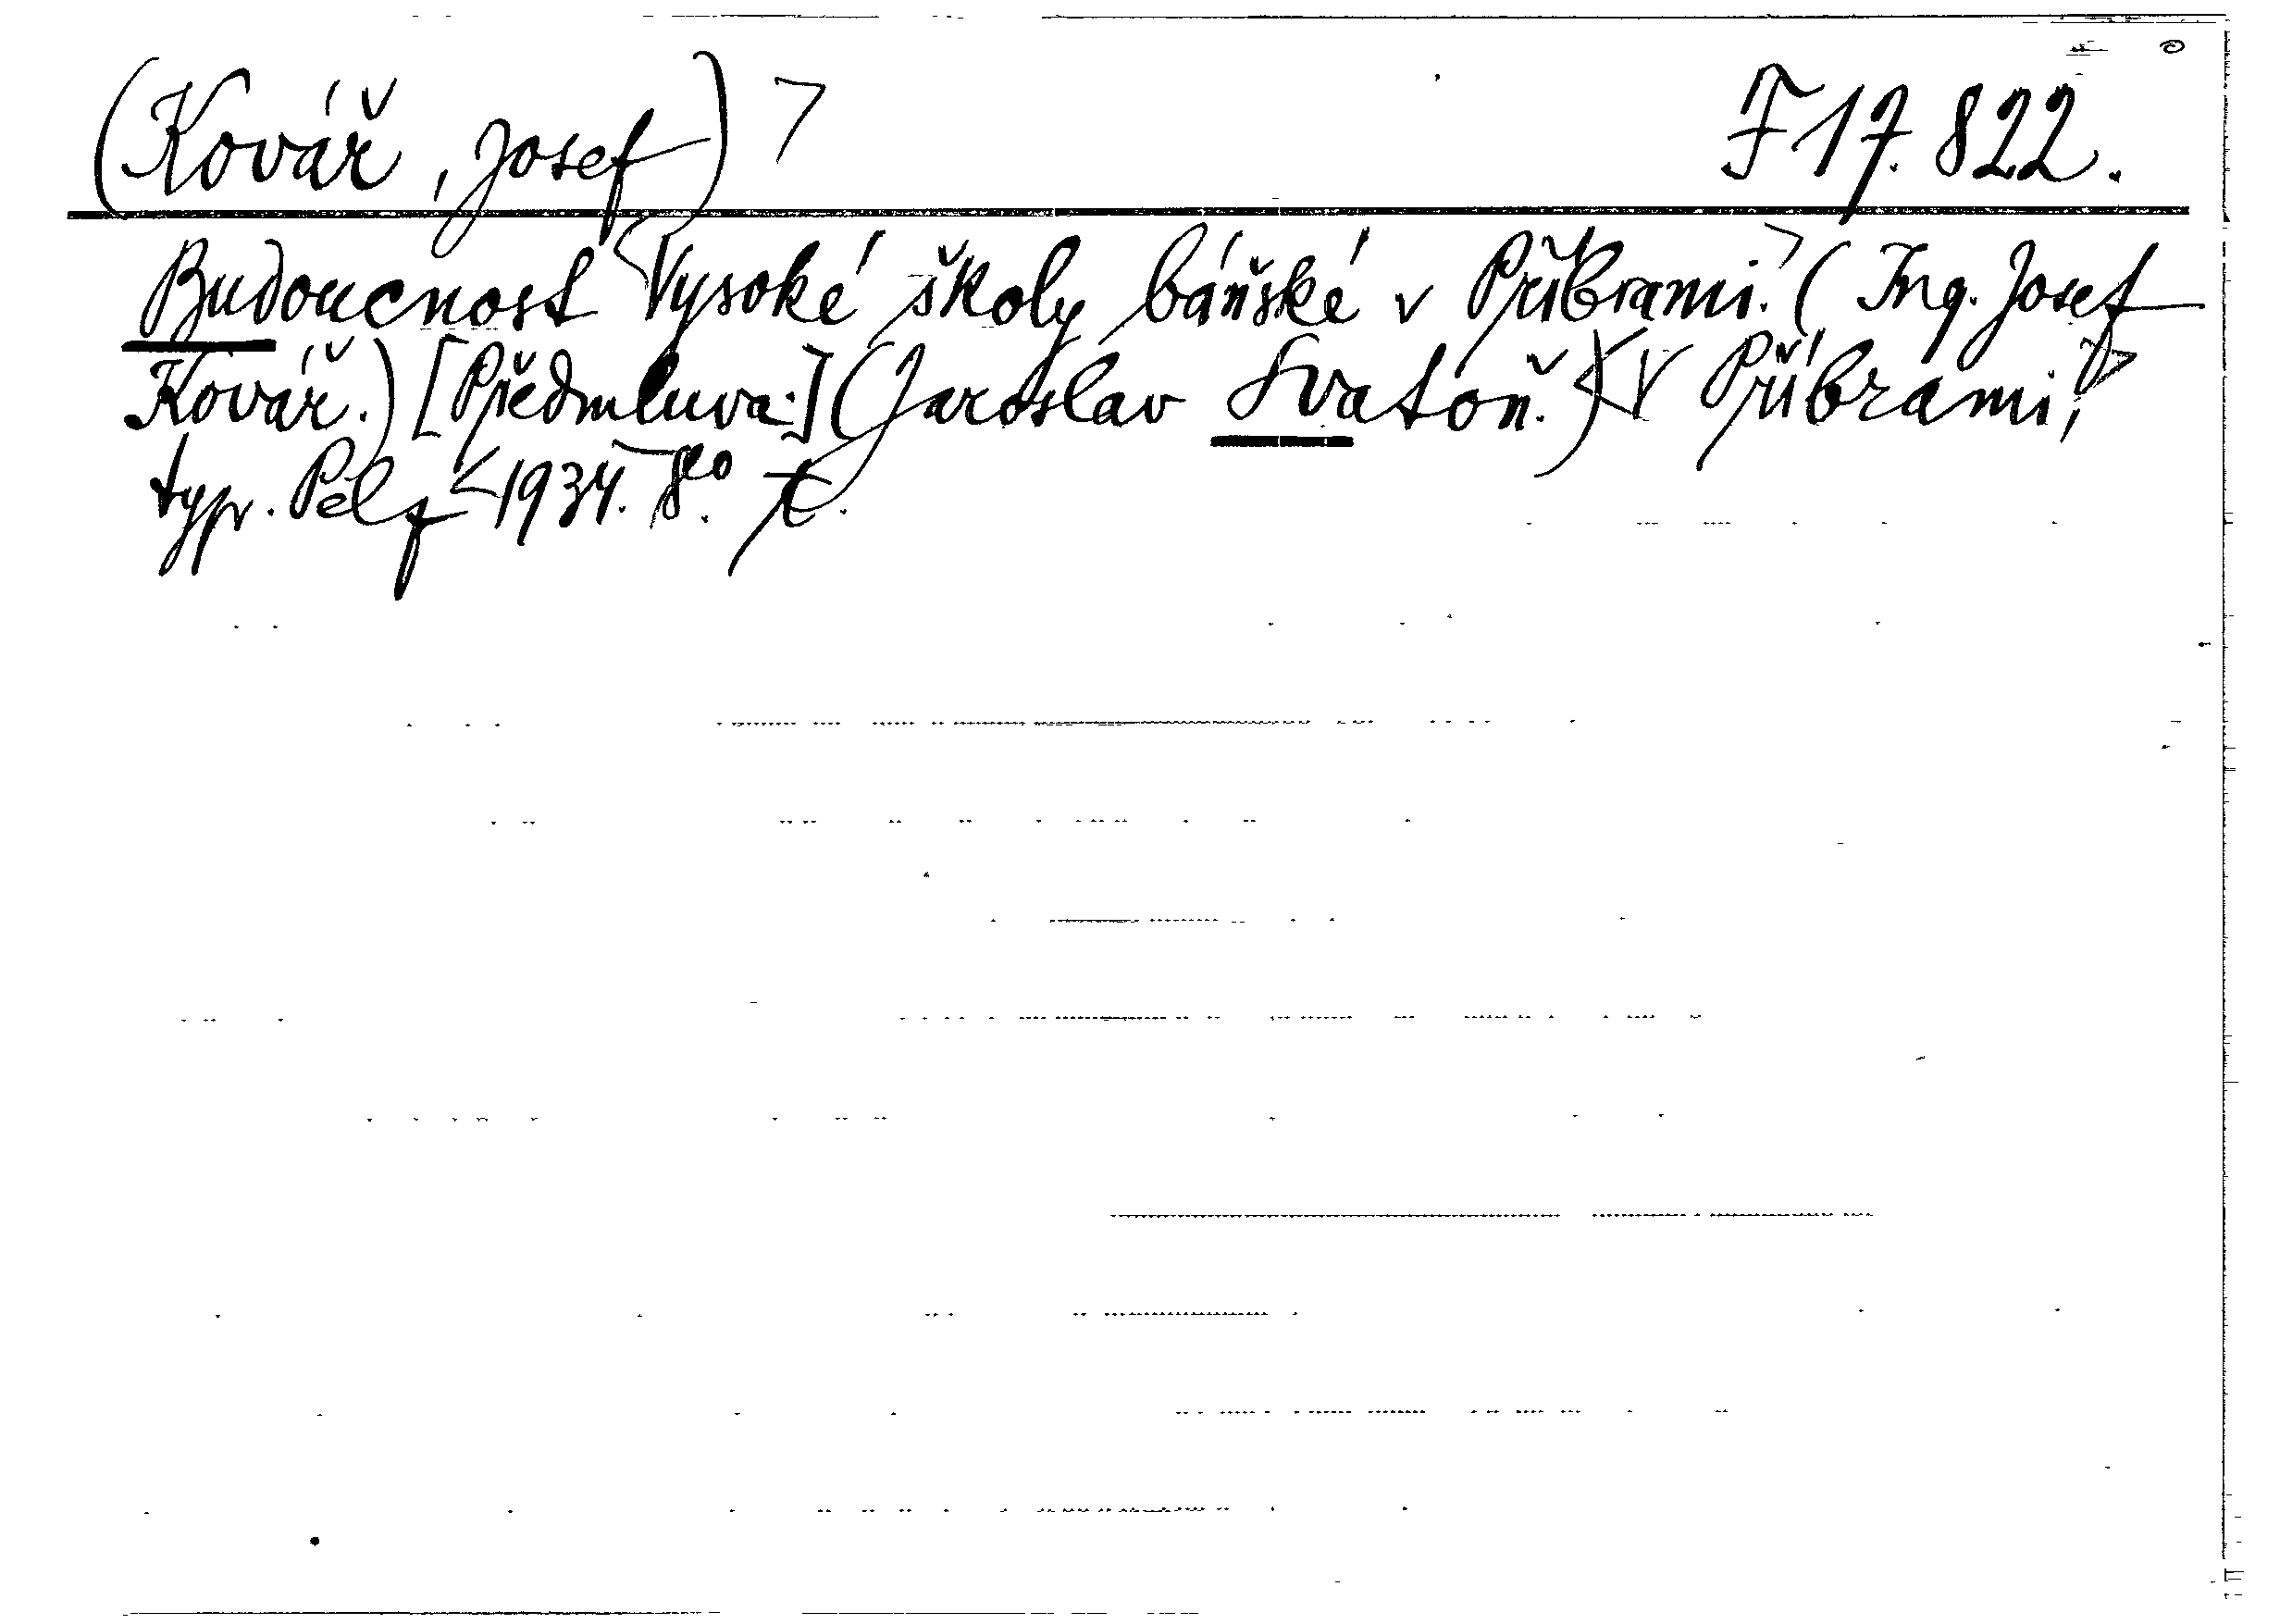 (Kovář, Josef) > F 17.822.
Budoucnost <Vysoké školy báňské v Příbrami.> (Ing. Josef
Kovář.) [Předmluva:] (Jaroslav Svatoň.) <V Příbrami,>
typ. Pelz <1934.> 8°.